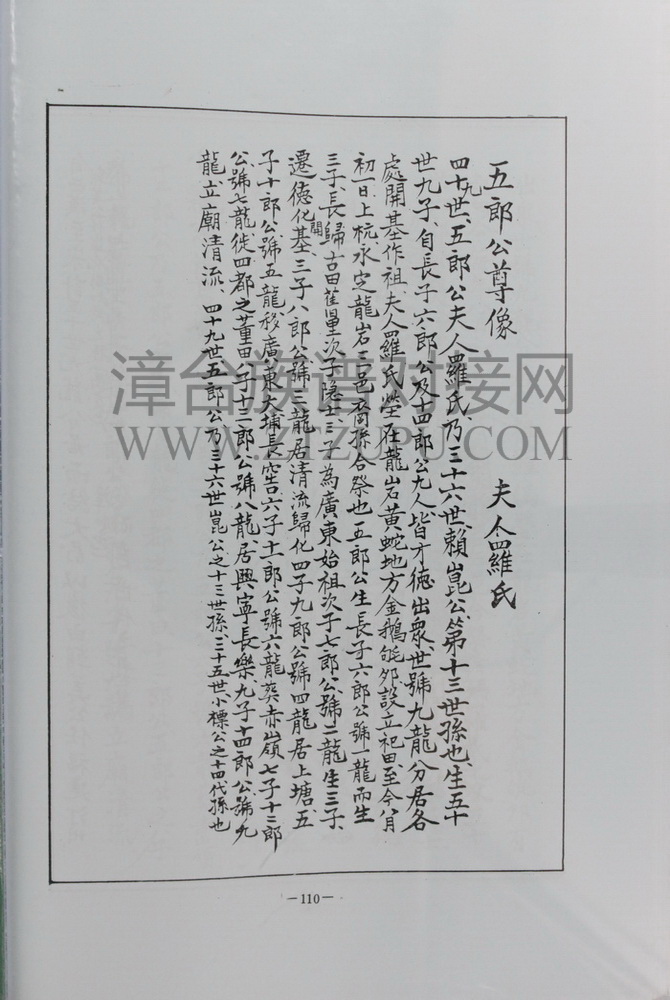 五郎公尊像 夫人羅氏
四十九世、五郎公夫人羅氏、乃三十六世、賴崑公、第十三世孫也、生五十
世九子、自長子六郎公及十四郎公九人、皆才德出衆、世號九龍分居各
處開基作祖、夫人羅氏塋在龍岩黃蛇地方金鵝 卵設立祀田、至今八月
初一日上杭永定龍岩三邑裔孫合祭也五郎公生長子六郎公號一龍而生
三子、長歸古田 次子隱士三子為廣東始祖次子七郎公號二龍生三子、
遷德化開基、三子八郎公號三龍居清流歸化四子九郎公號四龍居上塘、五
子十郎公號五龍移廣東大埔長窖六子十一郎公號六龍葵赤嶺七子十二郎
公號七龍徙四都之董田八子十三郎公號八龍居興寧長樂、九子十四郎公號九
龍立廟清流、四十九世、五郎公乃三十六世崑公之十三世孫、三十五世、小標公之十四代孫也
漳台族谱对接网
WWW.ZTZUPU.COM
－110－